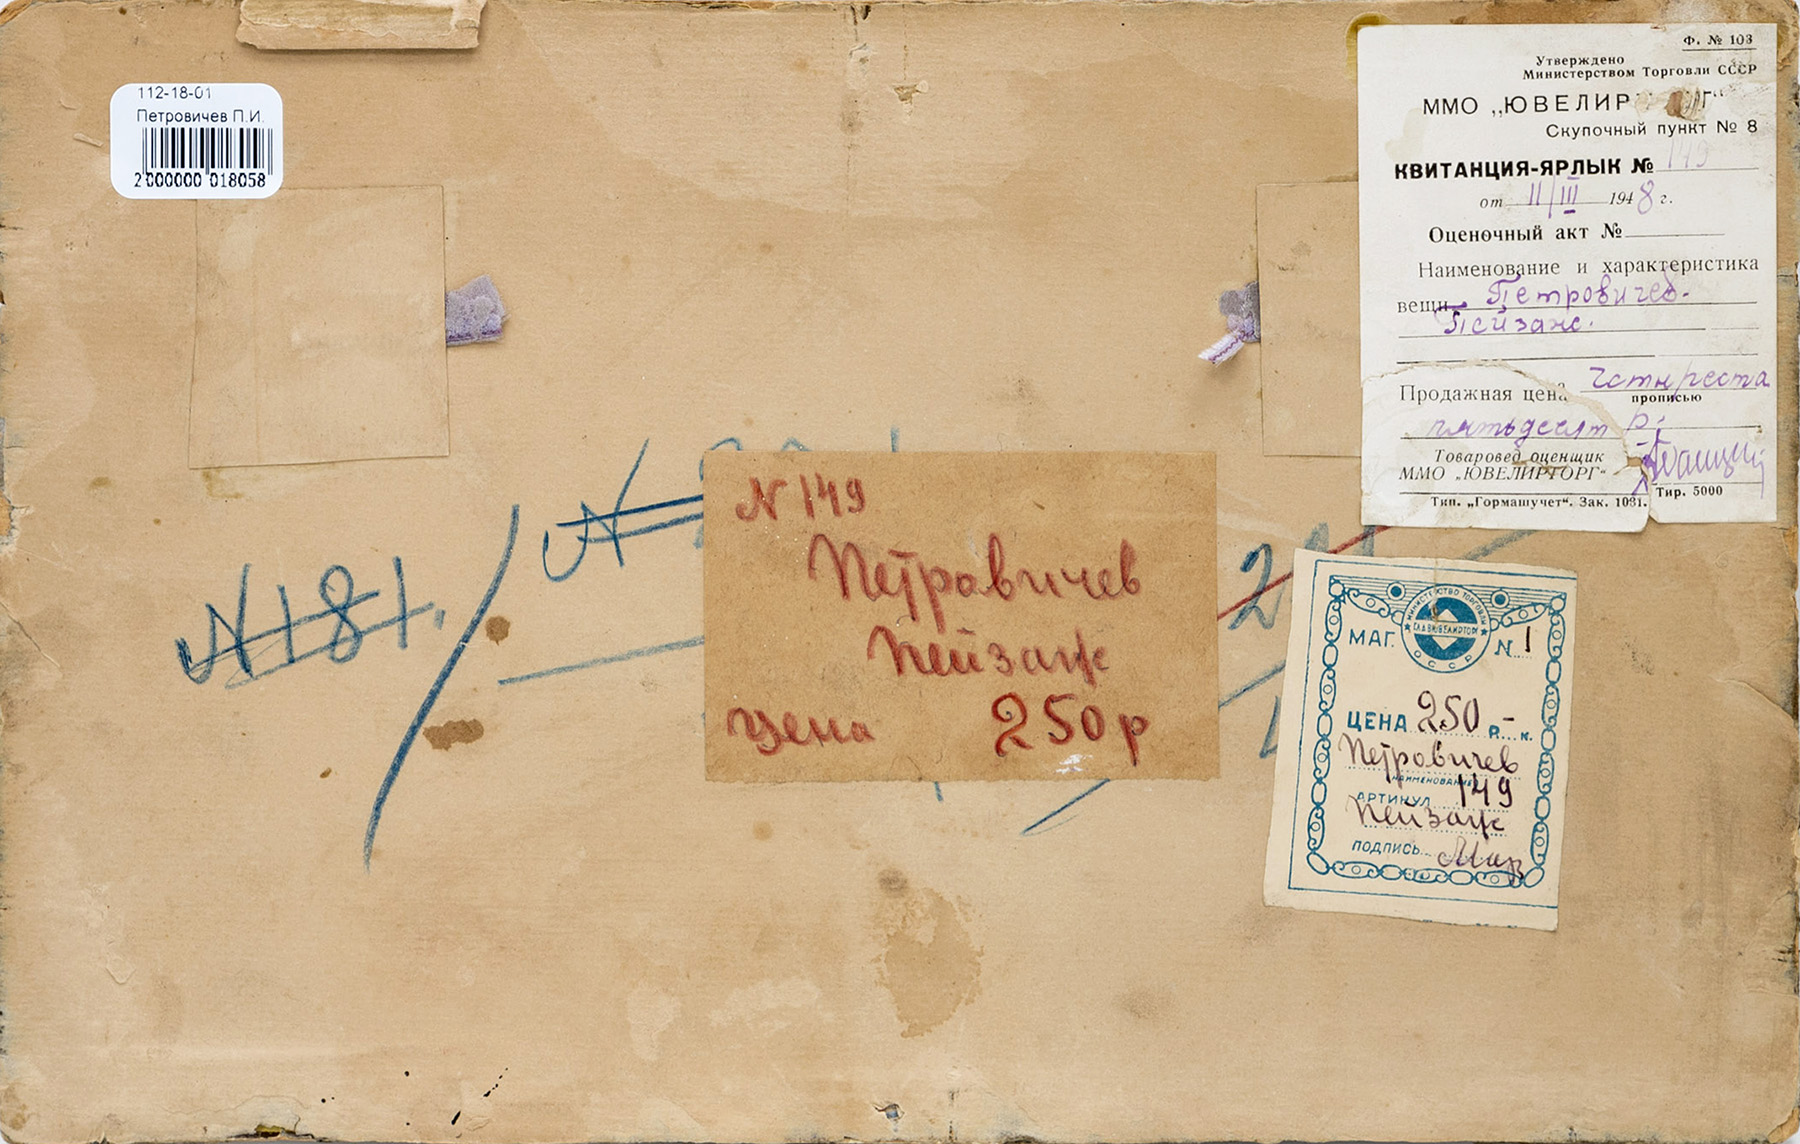 112-18-01
Петровичев П.И.
2 000000 018058
Ф. № 103
Утверждено
Министерством Торговли СССР
ММО „ЮВЕЛИР
Скупочный пункт № 8
КВИТАНЦИЯ-ЯРЛЫК № 149
от 11/III 1948 г.
Оценочный акт №
Наименование и характеристика
вещи Петровичев.
Пейзаж.
Продажная цена четыреста
прописью
пятьдесят р.
Товаровед оценщик
ММО „ЮВЕЛИРТОРГ“
Тип. „Гормашучет“. Зак. 1081. Тир. 5000
N 181.
N
N 149
Петровичев
Пейзаж
цена 250 р
МИНИСТЕРСТВО ТОРГОВЛИ
ГЛАВЮВЕЛИРТОРГ
СССР
МАГ. N 1
ЦЕНА 250 Р. – К.
Петровичев
НАИМЕНОВАНИЕ
АРТИКУЛ 149
Пейзаж
ПОДПИСЬ